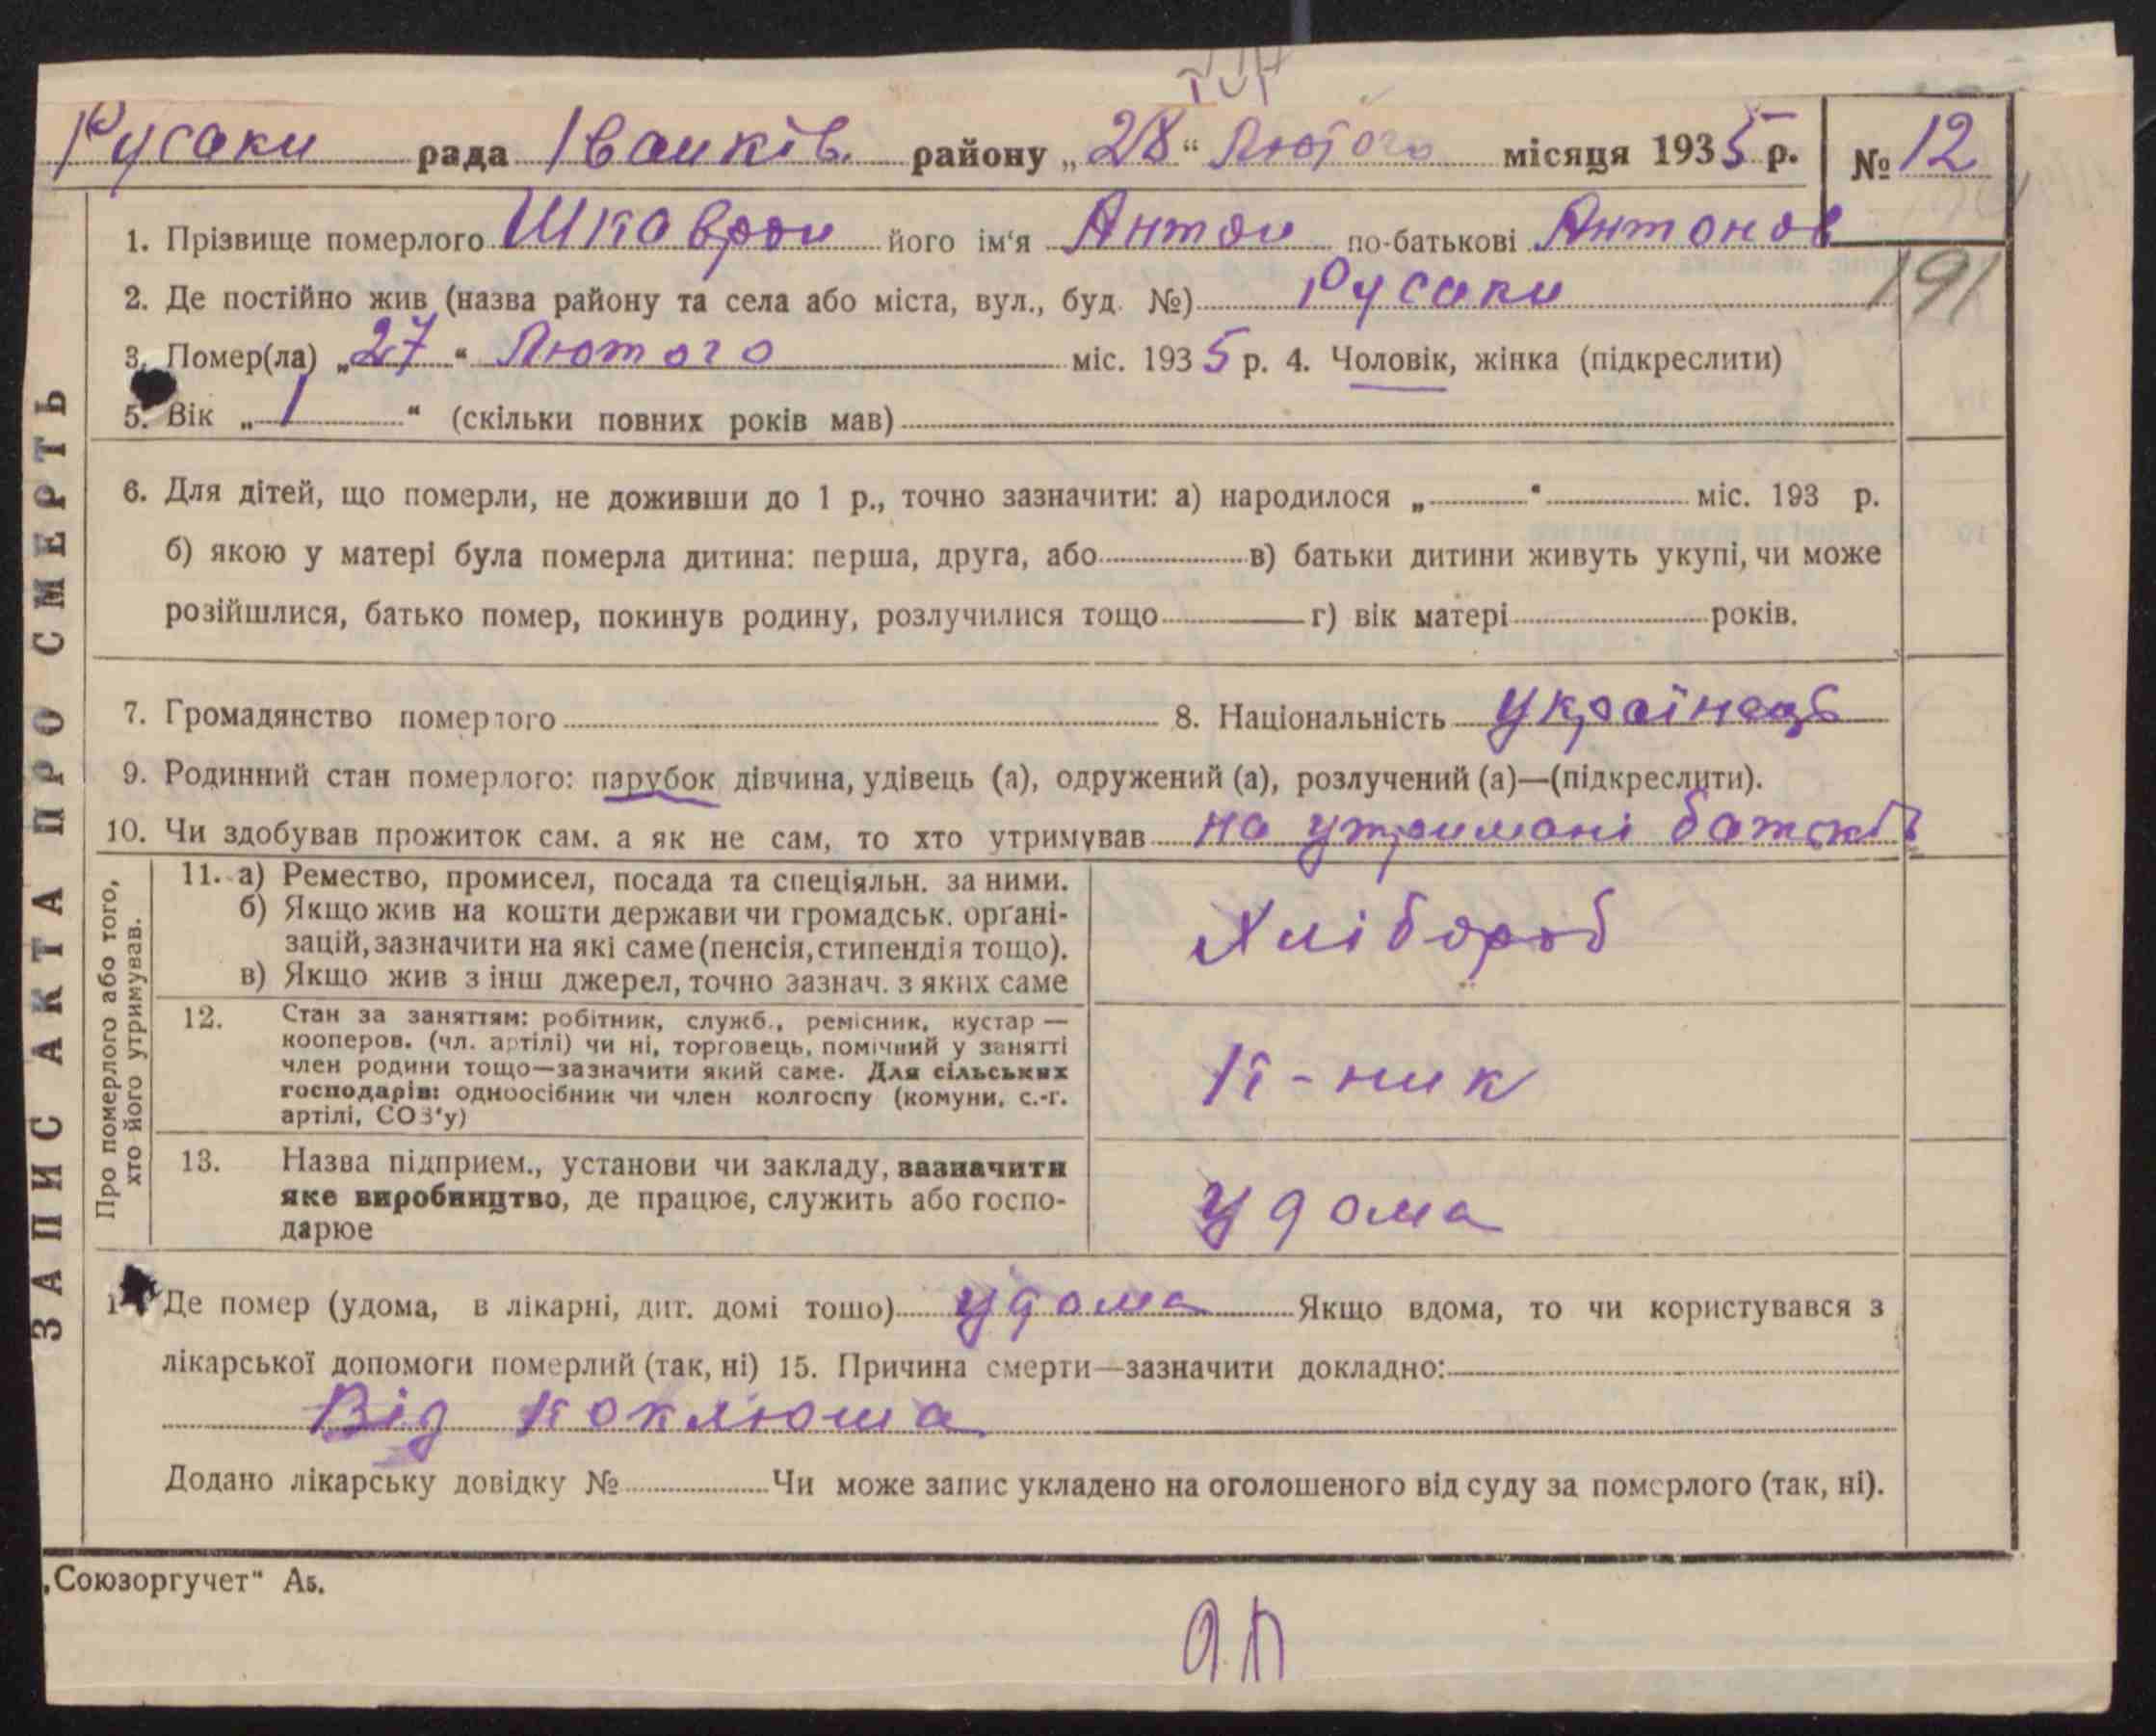 Русаки рада Іванків. району „28“ Лютого місяця 1935 р. № 12
1. Прізвище померлого Шкаврон його ім'я Антон по-батькові Антонов
191
2. Де постійно жив (назва району та села або міста, вул., буд. №) Русаки
3. Помер(ла) „27“ Лютого міс. 1935 р. 4. Чоловік, жінка (підкреслити)
5. Вік „1“ (скільки повних років мав)
6. Для дітей, що померли, не доживши до 1 р., точно зазначити: а) народилося „ “ міс. 193 р.
б) якою у матері була померла дитина: перша, друга, або в) батьки дитини живуть укупі, чи може
розійшлися, батько помер, покинув родину, розлучилися тощо г) вік матері років.
7. Громадянство померлого 8. Національність Українець
9. Родинний стан померлого: парубок дівчина, удівець (а), одружений (а), розлучений (а)—(підкреслити).
10. Чи здобував прожиток сам, а як не сам, то хто утримував на утримані батьків
Про померлого або того,
хто його утримував.
11. а) Ремество, промисел, посада та спеціяльн. за ними.
б) Якщо жив на кошти держави чи громадськ. орґані-
зацій, зазначити на які саме (пенсія, стипендія тощо).
в) Якщо жив з інш джерел, точно зазнач. з яких саме
Хлібороб
12. Стан за заняттям: робітник, служб., ремісник, кустар —
кооперов. (чл. артілі) чи ні, торговець, помічний у занятті
член родини тощо—зазначити який саме. Для сільських
господарів: одноосібник чи член колгоспу (комуни, с.-г.
артілі, СОЗ'у)
К-ник
13. Назва підприєм., установи чи закладу, зазначити
яке виробництво, де працює, служить або госпо-
дарює
Удома
Де помер (удома, в лікарні, дит. домі тощо) удома Якщо вдома, то чи користувався з
лікарської допомоги померлий (так, ні) 15. Причина смерти—зазначити докладно:
Від коклюша
Додано лікарську довідку № Чи може запис укладено на оголошеного від суду за померлого (так, ні).
ЗАПИС АКТА ПРО СМЕРТЬ
„Союзоргучет“ А5.